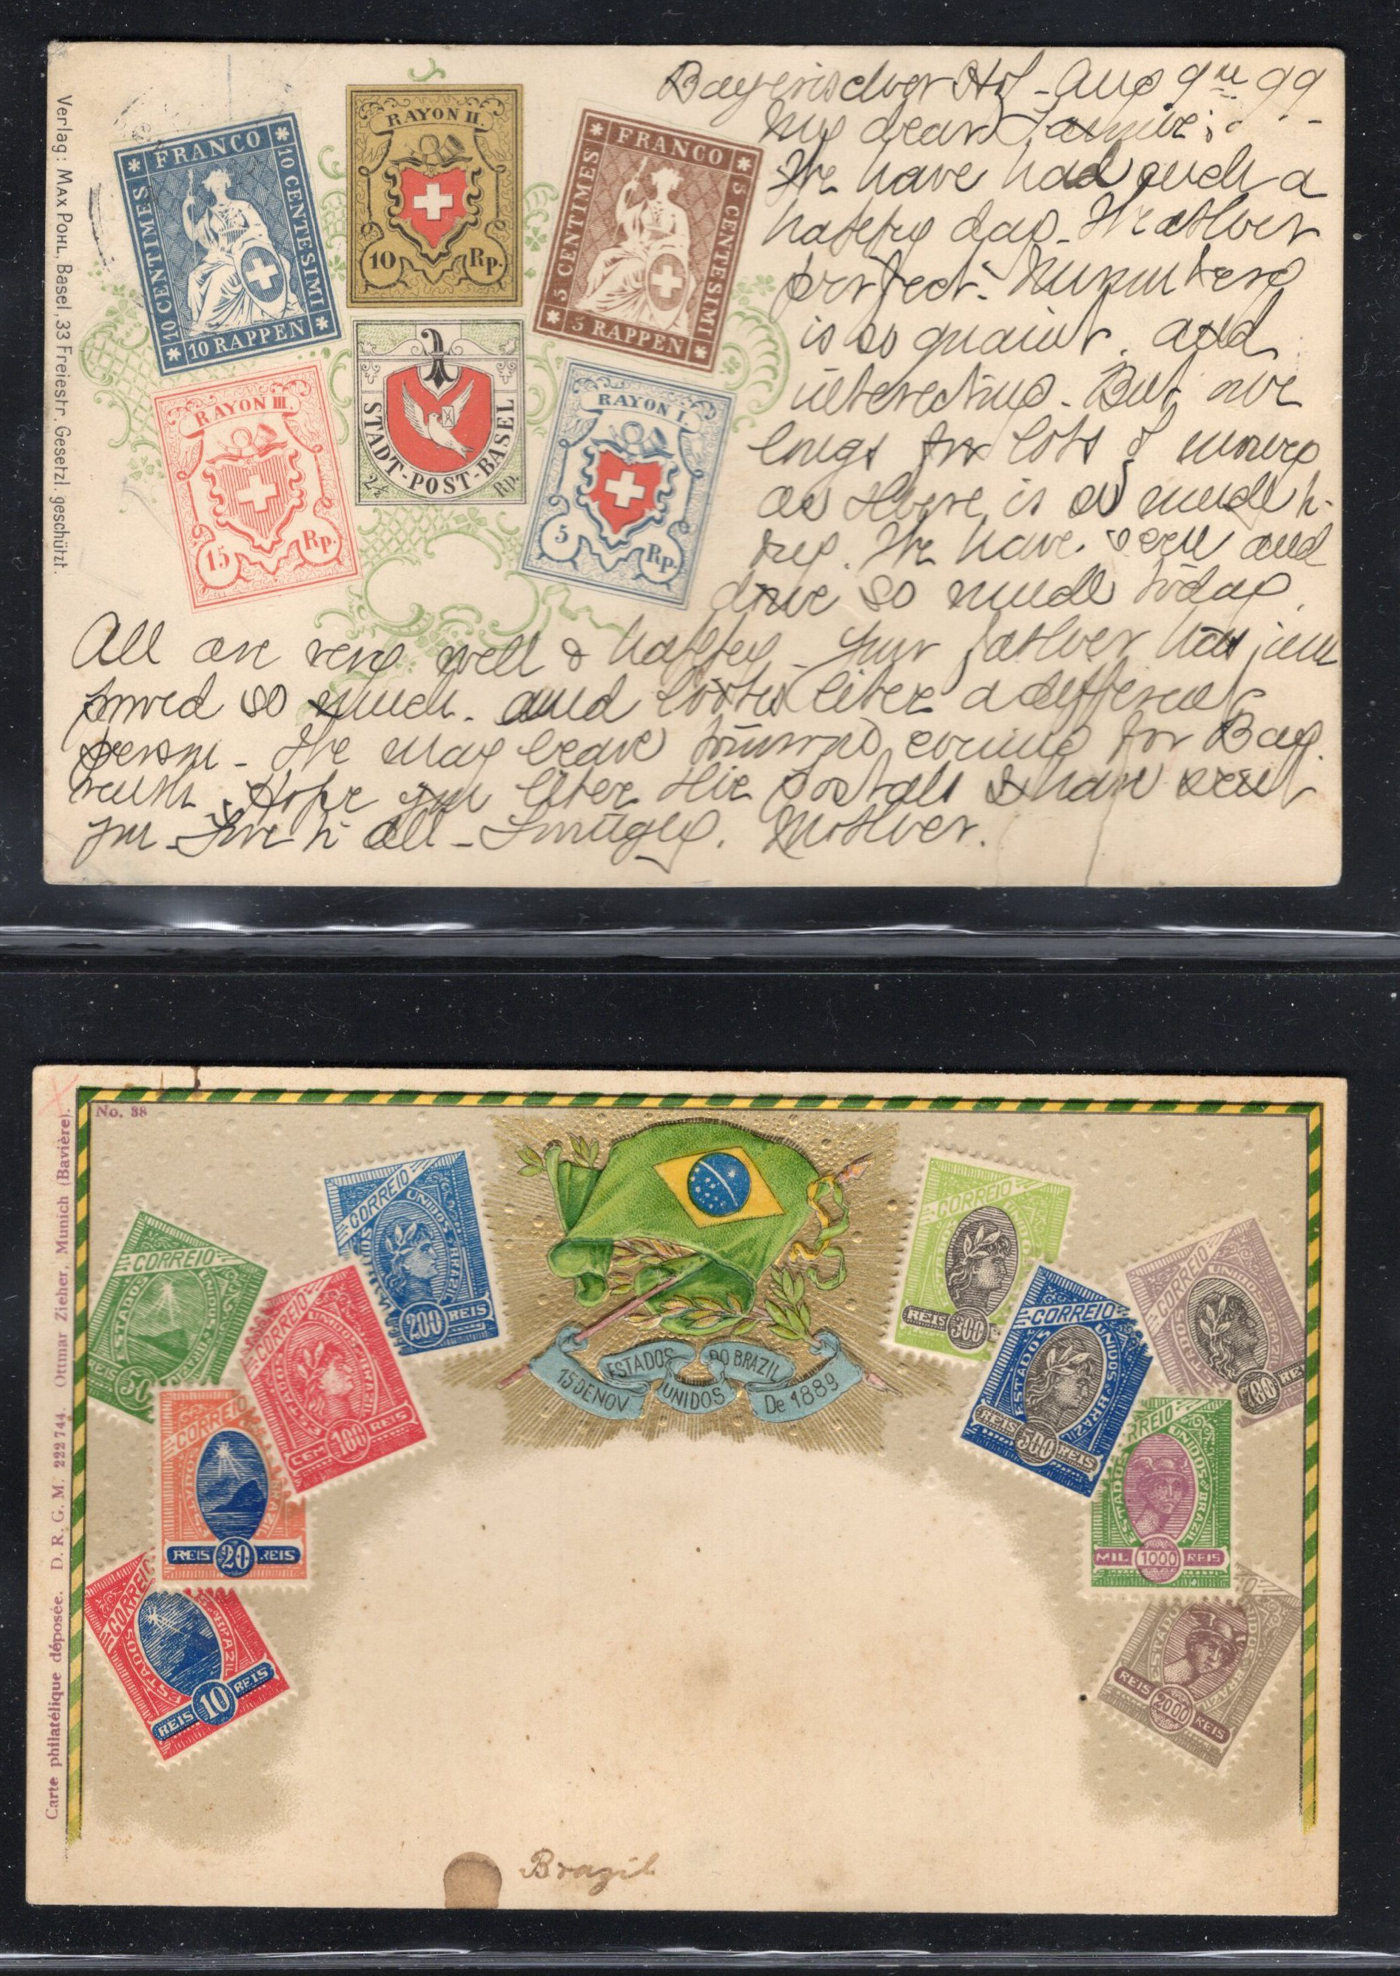 Verlag: MAX POHL, Basel, 33 Freiestr. Gesetzl. geschützt.
FRANCO
10 CENTIMES
10 CENTESIMI
10 RAPPEN
RAYON II
10 Rp.
FRANCO
5 CENTIMES
5 CENTESIMI
5 RAPPEN
RAYON III
15 Rp.
STADT-POST-BASEL
2½ Rp.
RAYON I.
5 Rp.
Bayerischer Hof - Aug 9th 99
My dear
We have had such a
happy day. Weather
perfect. Nuremberg
is so quaint and
interesting. But one
longs for lots of money
as there is so much to
buy. We have seen and
done so much today.
All are very well & happy - Your father has im
proved so much. and looks like a different
person - We may leave tomorrow evening for Bay
reuth. Hope you like the postals I have sent
you - Love to all - Lovingly. Mother.
No. 38
Carte philatélique déposée. D. R. G. M. 222744. Ottmar Zieher, Munich (Bavière).
CORREIO
ESTADOS UNIDOS
REIS 50
CORREIO
UNIDOS DO BRAZIL
200 REIS
CORREIO
ESTADOS UNIDOS BRAZIL
CEM 100 REIS
CORREIO
REIS 20 REIS
CORREIO
ESTADOS BRAZIL
REIS 10 REIS
15 DE NOV. ESTADOS UNIDOS DO BRAZIL De 1889
CORREIO
REIS 300
CORREIO
ESTADOS UNIDOS BRAZIL
REIS 500 REIS
CORREIO
UNIDOS
700 REI
ESTADOS UNIDOS BRAZIL
MIL 1000 REIS
REIS 2000 REIS
Brazil